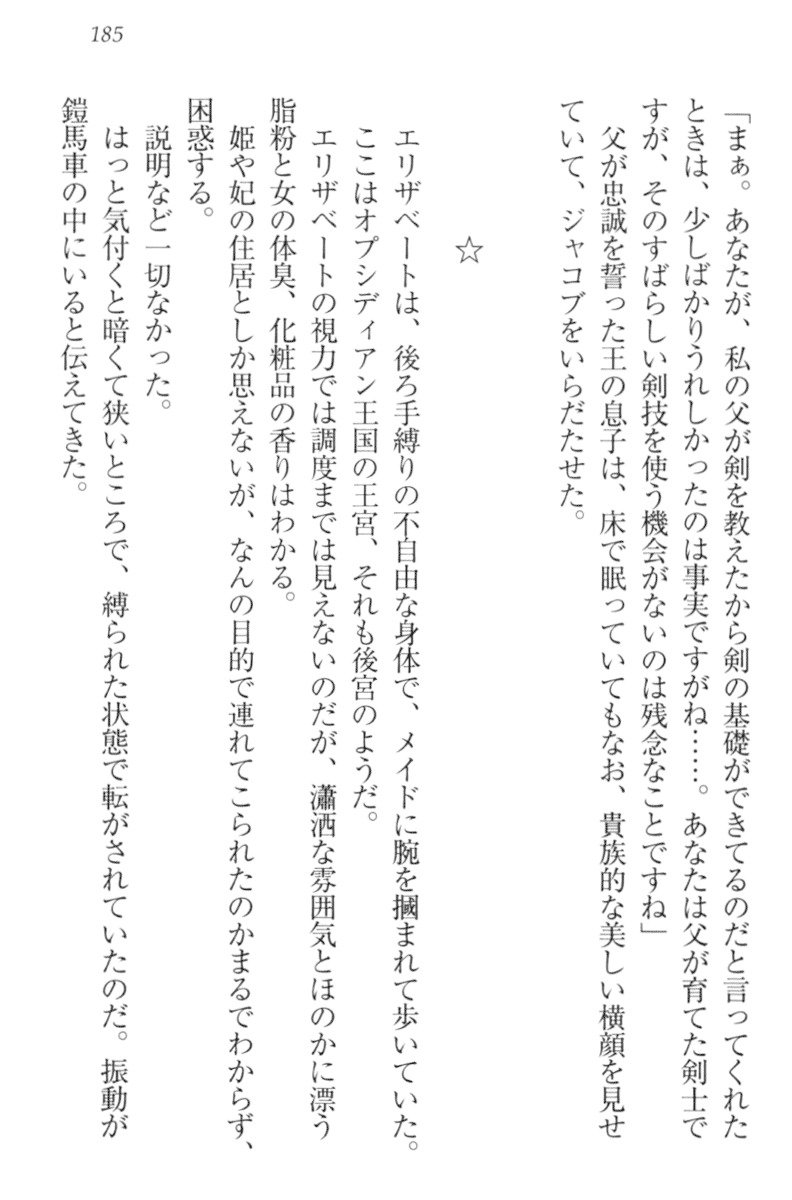 185
「まぁ。あなたが、私の父が剣を教えたから剣の基礎ができてるのだと言ってくれた
ときは、少しばかりうれしかったのは事実ですがね……。あなたは父が育てた剣士で
すが、そのすばらしい剣技を使う機会がないのは残念なことですね」
父が忠誠を誓った王の息子は、床で眠っていてもなお、貴族的な美しい横顔を見せ
ていて、ジャコブをいらだたせた。
☆
エリザベートは、後ろ手縛りの不自由な身体で、メイドに腕を摑まれて歩いていた。
ここはオプシディアン王国の王宮、それも後宮のようだ。
エリザベートの視力では調度までは見えないのだが、瀟洒な雰囲気とほのかに漂う
脂粉と女の体臭、化粧品の香りはわかる。
姫や妃の住居としか思えないが、なんの目的で連れてこられたのかまるでわからず、
困惑する。
説明など一切なかった。
はっと気付くと暗くて狭いところで、縛られた状態で転がされていたのだ。振動が
鎧馬車の中にいると伝えてきた。